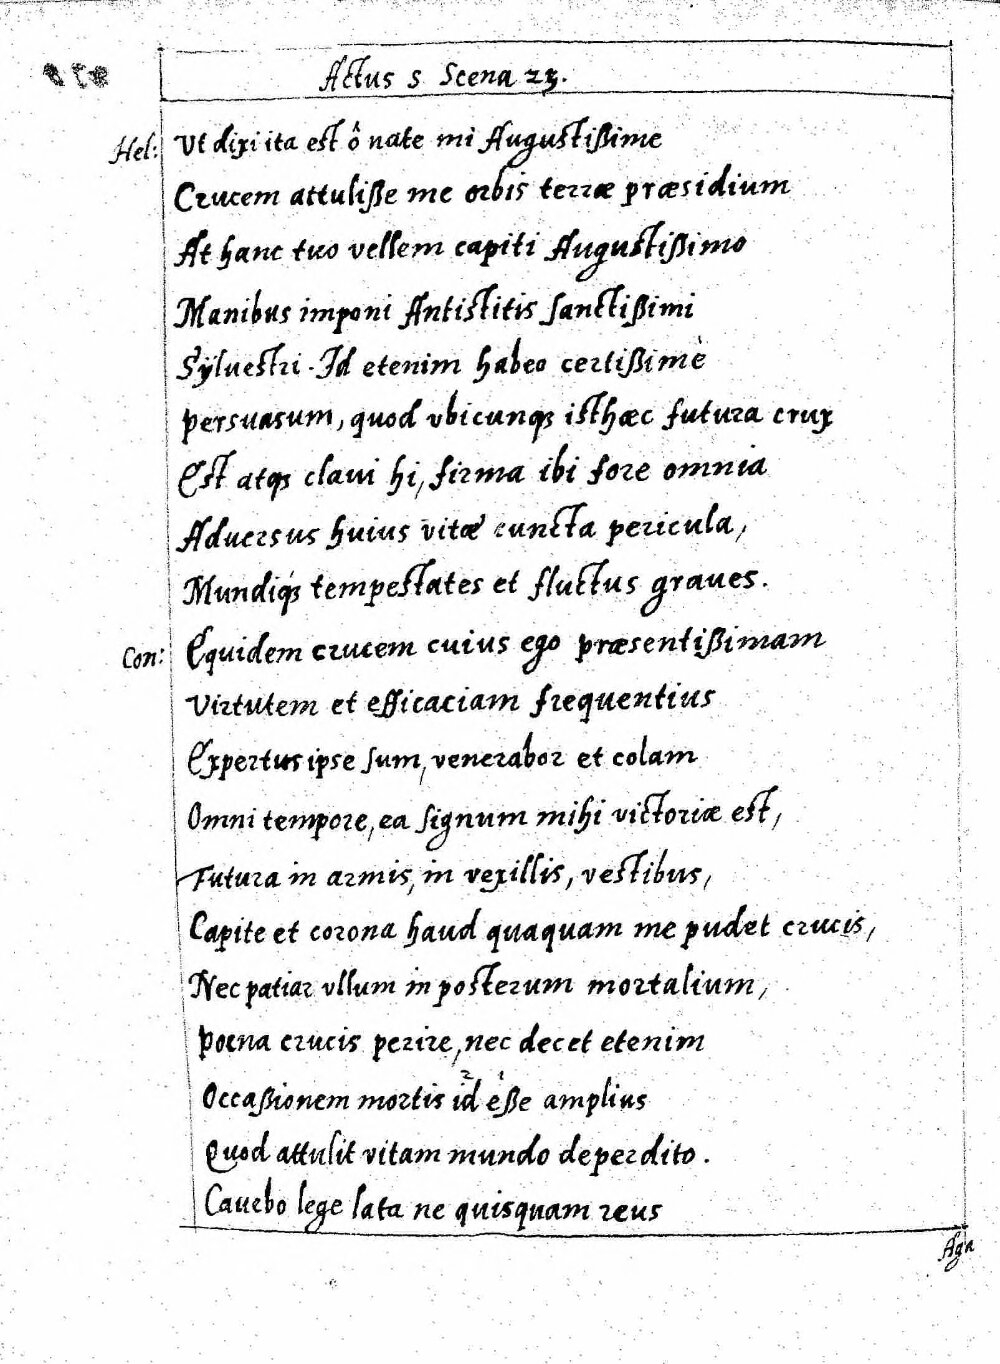 Actus 5 Scena 23.
Hel: Ut dixi ita est ô nate mi Augustißime
Crucem attuliße me orbis terræ præsidium
At hanc tuo vellem capiti Augustißimo
Manibus imponi Antistitis sanctißimi
Sÿluestri. Id etenim habeo certißimè
persuasum, quod vbicunqȝ isthæc futura crux
Est atqȝ claui hi, firma ibi fore omnia
Aduersus huius vitæ cuncta pericula,
Mundiqȝ tempestates et fluctus graues.
Con: Equidem crucem cuius ego præsentißimam
Virtutem et efficaciam frequentius
Expertus ipse sum, venerabor et colam
Omni tempore, ea signum mihi victoriæ est,
Futura in armis, in vexillis, vestibus,
Capite et corona haud quaquam me pudet crucis,
Nec patiar vllum in posterum mortalium,
poena crucis perire, nec decet etenim
2 1
Occaßionem mortis id eße amplius
Quod attulit vitam mundo deperdito.
Cauebo lege lata ne quisquam reus
Aga